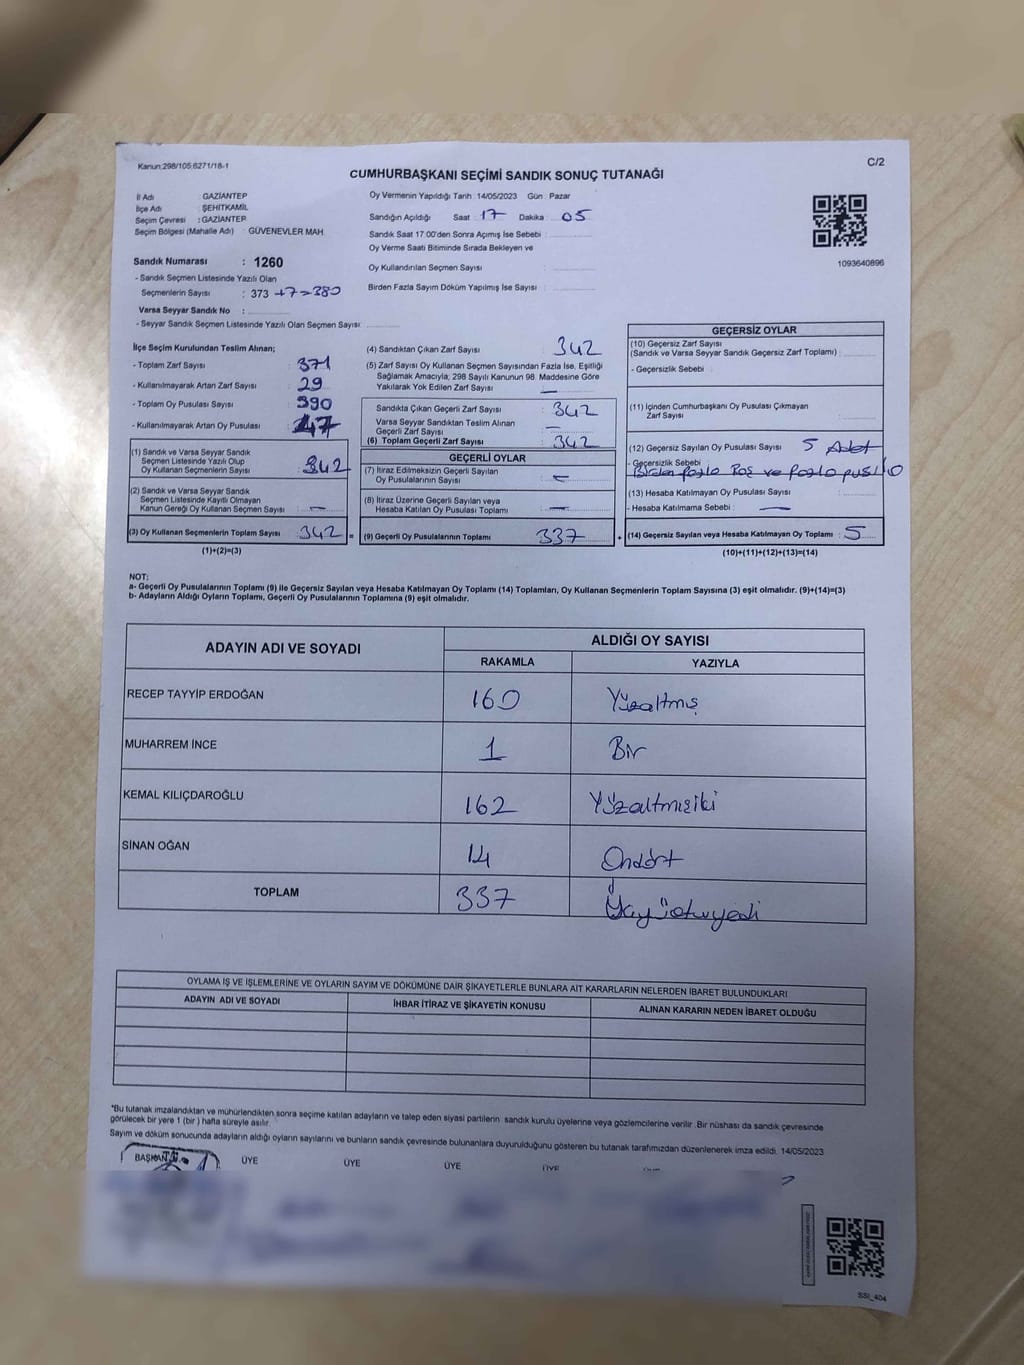 Kanun:298/105;6271/18-1
C/2
CUMHURBAŞKANI SEÇİMİ SANDIK SONUÇ TUTANAĞI
İl Adı : GAZİANTEP
İlçe Adı : ŞEHİTKAMİL
Seçim Çevresi : GAZİANTEP
Seçim Bölgesi (Mahalle Adı) : GÜVENEVLER MAH.
Sandık Numarası : 1260
- Sandık Seçmen Listesinde Yazılı Olan
Seçmenlerin Sayısı : 373 +7=380
Varsa Seyyar Sandık No :
- Seyyar Sandık Seçmen Listesinde Yazılı Olan Seçmen Sayısı
Oy Vermenin Yapıldığı Tarih : 14/05/2023 Gün : Pazar
Sandığın Açıldığı Saat : 17 Dakika : 05
Sandık Saat 17:00'den Sonra Açımış İse Sebebi :
Oy Verme Saati Bitiminde Sırada Bekleyen ve
Oy Kullandırılan Seçmen Sayısı :
Birden Fazla Sayım Döküm Yapılmış İse Sayısı :
1093640896
İlçe Seçim Kurulundan Teslim Alınan;
- Toplam Zarf Sayısı : 371
- Kullanılmayarak Artan Zarf Sayısı : 29
- Toplam Oy Pusulası Sayısı : 390
- Kullanılmayarak Artan Oy Pusulası : 47
(1) Sandık ve Varsa Seyyar Sandık
Seçmen Listesinde Yazılı Olup
Oy Kullanan Seçmenlerin Sayısı : 342
(2) Sandık ve Varsa Seyyar Sandık
Seçmen Listesinde Kayıtlı Olmayan
Kanun Gereği Oy Kullanan Seçmen Sayısı : —
(3) Oy Kullanan Seçmenlerin Toplam Sayısı : 342 =
(1)+(2)=(3)
(4) Sandıktan Çıkan Zarf Sayısı : 342
(5) Zarf Sayısı Oy Kullanan Seçmen Sayısından Fazla İse, Eşitliği
Sağlamak Amacıyla; 298 Sayılı Kanunun 98. Maddesine Göre
Yakılarak Yok Edilen Zarf Sayısı : —
Sandıkta Çıkan Geçerli Zarf Sayısı : 342
Varsa Seyyar Sandıktan Teslim Alınan
Geçerli Zarf Sayısı : —
(6) Toplam Geçerli Zarf Sayısı : 342
GEÇERLİ OYLAR
(7) İtiraz Edilmeksizin Geçerli Sayılan
Oy Pusulalarının Sayısı : —
(8) İtiraz Üzerine Geçerli Sayılan veya
Hesaba Katılan Oy Pusulası Toplamı : —
(9) Geçerli Oy Pusulalarının Toplamı : 337 +
GEÇERSİZ OYLAR
(10) Geçersiz Zarf Sayısı
(Sandık ve Varsa Seyyar Sandık Geçersiz Zarf Toplamı) :
- Geçersizlik Sebebi :
(11) İçinden Cumhurbaşkanı Oy Pusulası Çıkmayan
Zarf Sayısı :
(12) Geçersiz Sayılan Oy Pusulası Sayısı : 5 Adet
- Geçersizlik Sebebi :
Birden fazla Boş ve fazla pusila
(13) Hesaba Katılmayan Oy Pusulası Sayısı :
- Hesaba Katılmama Sebebi : —
(14) Geçersiz Sayılan veya Hesaba Katılmayan Oy Toplamı : 5
(10)+(11)+(12)+(13)=(14)
NOT:
a- Geçerli Oy Pusulalarının Toplamı (9) ile Geçersiz Sayılan veya Hesaba Katılmayan Oy Toplamı (14) Toplamları, Oy Kullanan Seçmenlerin Toplam Sayısına (3) eşit olmalıdır. (9)+(14)=(3)
b- Adayların Aldığı Oyların Toplamı, Geçerli Oy Pusulalarının Toplamına (9) eşit olmalıdır.
ADAYIN ADI VE SOYADI ALDIĞI OY SAYISI
RAKAMLA YAZIYLA
RECEP TAYYİP ERDOĞAN 160 Yüzaltmış
MUHARREM İNCE 1 Bir
KEMAL KILIÇDAROĞLU 162 Yüzaltmışiki
SİNAN OĞAN 14 Ondört
TOPLAM 337
OYLAMA İŞ VE İŞLEMLERİNE VE OYLARIN SAYIM VE DÖKÜMÜNE DAİR ŞİKAYETLERLE BUNLARA AİT KARARLARIN NELERDEN İBARET BULUNDUKLARI
ADAYIN ADI VE SOYADI İHBAR İTİRAZ VE ŞİKAYETİN KONUSU ALINAN KARARIN NEDEN İBARET OLDUĞU
*Bu tutanak imzalandıktan ve mühürlendikten sonra seçime katılan adayların ve talep eden siyasi partilerin sandık kurulu üyelerine veya gözlemcilerine verilir. Bir nüshası da sandık çevresinde
görülecek bir yere 1 (bir) hafta süreyle asılır.
Sayım ve döküm sonucunda adayların aldığı oyların sayılarını ve bunların sandık çevresinde bulunanlara duyurulduğunu gösteren bu tutanak tarafımızdan düzenlenerek imza edildi. 14/05/2023
BAŞKAN ÜYE ÜYE ÜYE ÜYE
SSI_404